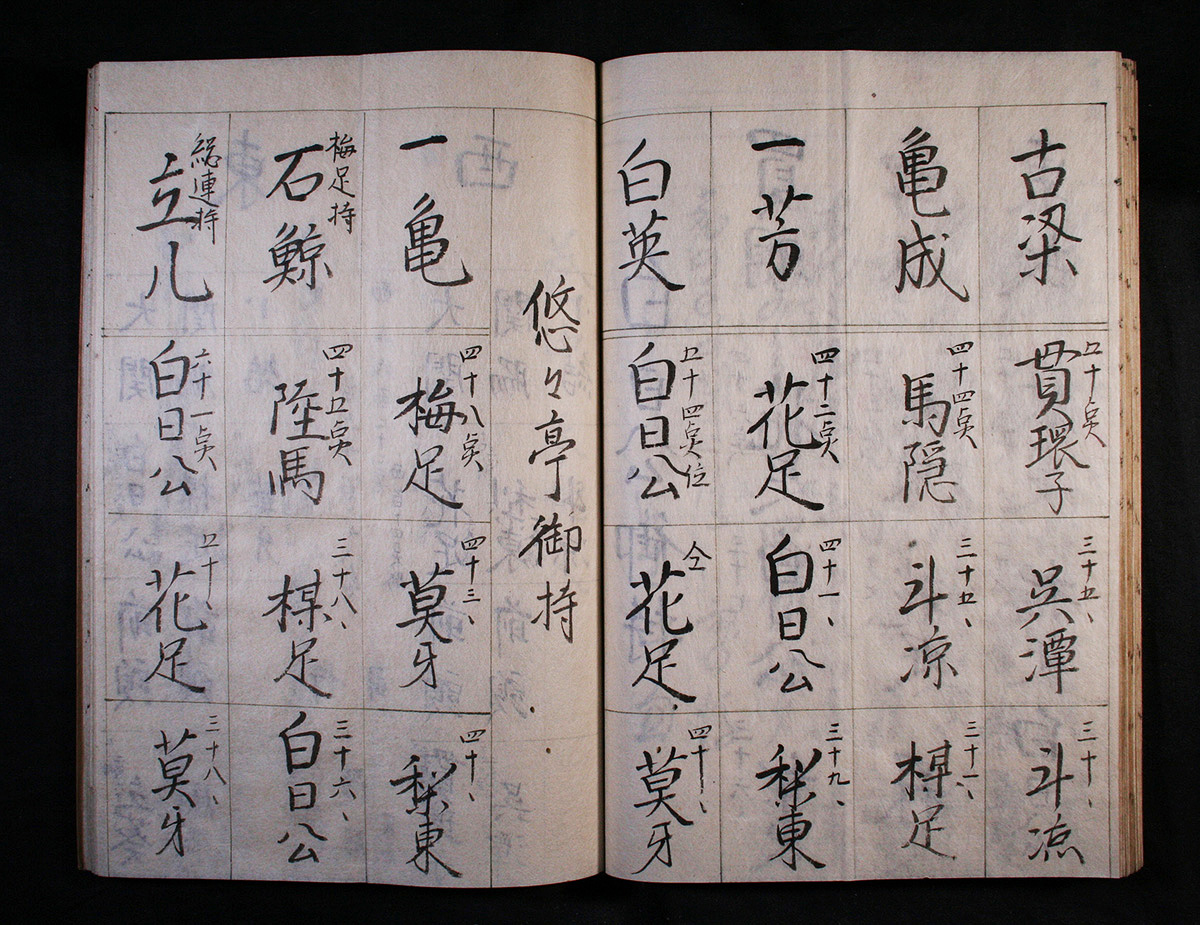 古梁
五十点
貫環子
三十五、
呉潭
三十、
斗涼
亀成
四十四点
馬隠
三十五、
斗涼
三十一、
楳足
一芳
四十二点
花足
四十一、
白日公
三十九、
梨東
白英
五十四点位
白日公
仝
花足
四十、
莫牙
悠々亭御持
一亀
四十八点
梅足
四十三、
莫牙
四十、
梨東
梅足持
石鯨
四十五点
陸馬
三十八、
楳足
三十六、
白日公
総連持
立几
六十一点
白日公
五十、
花足
三十八、
莫牙